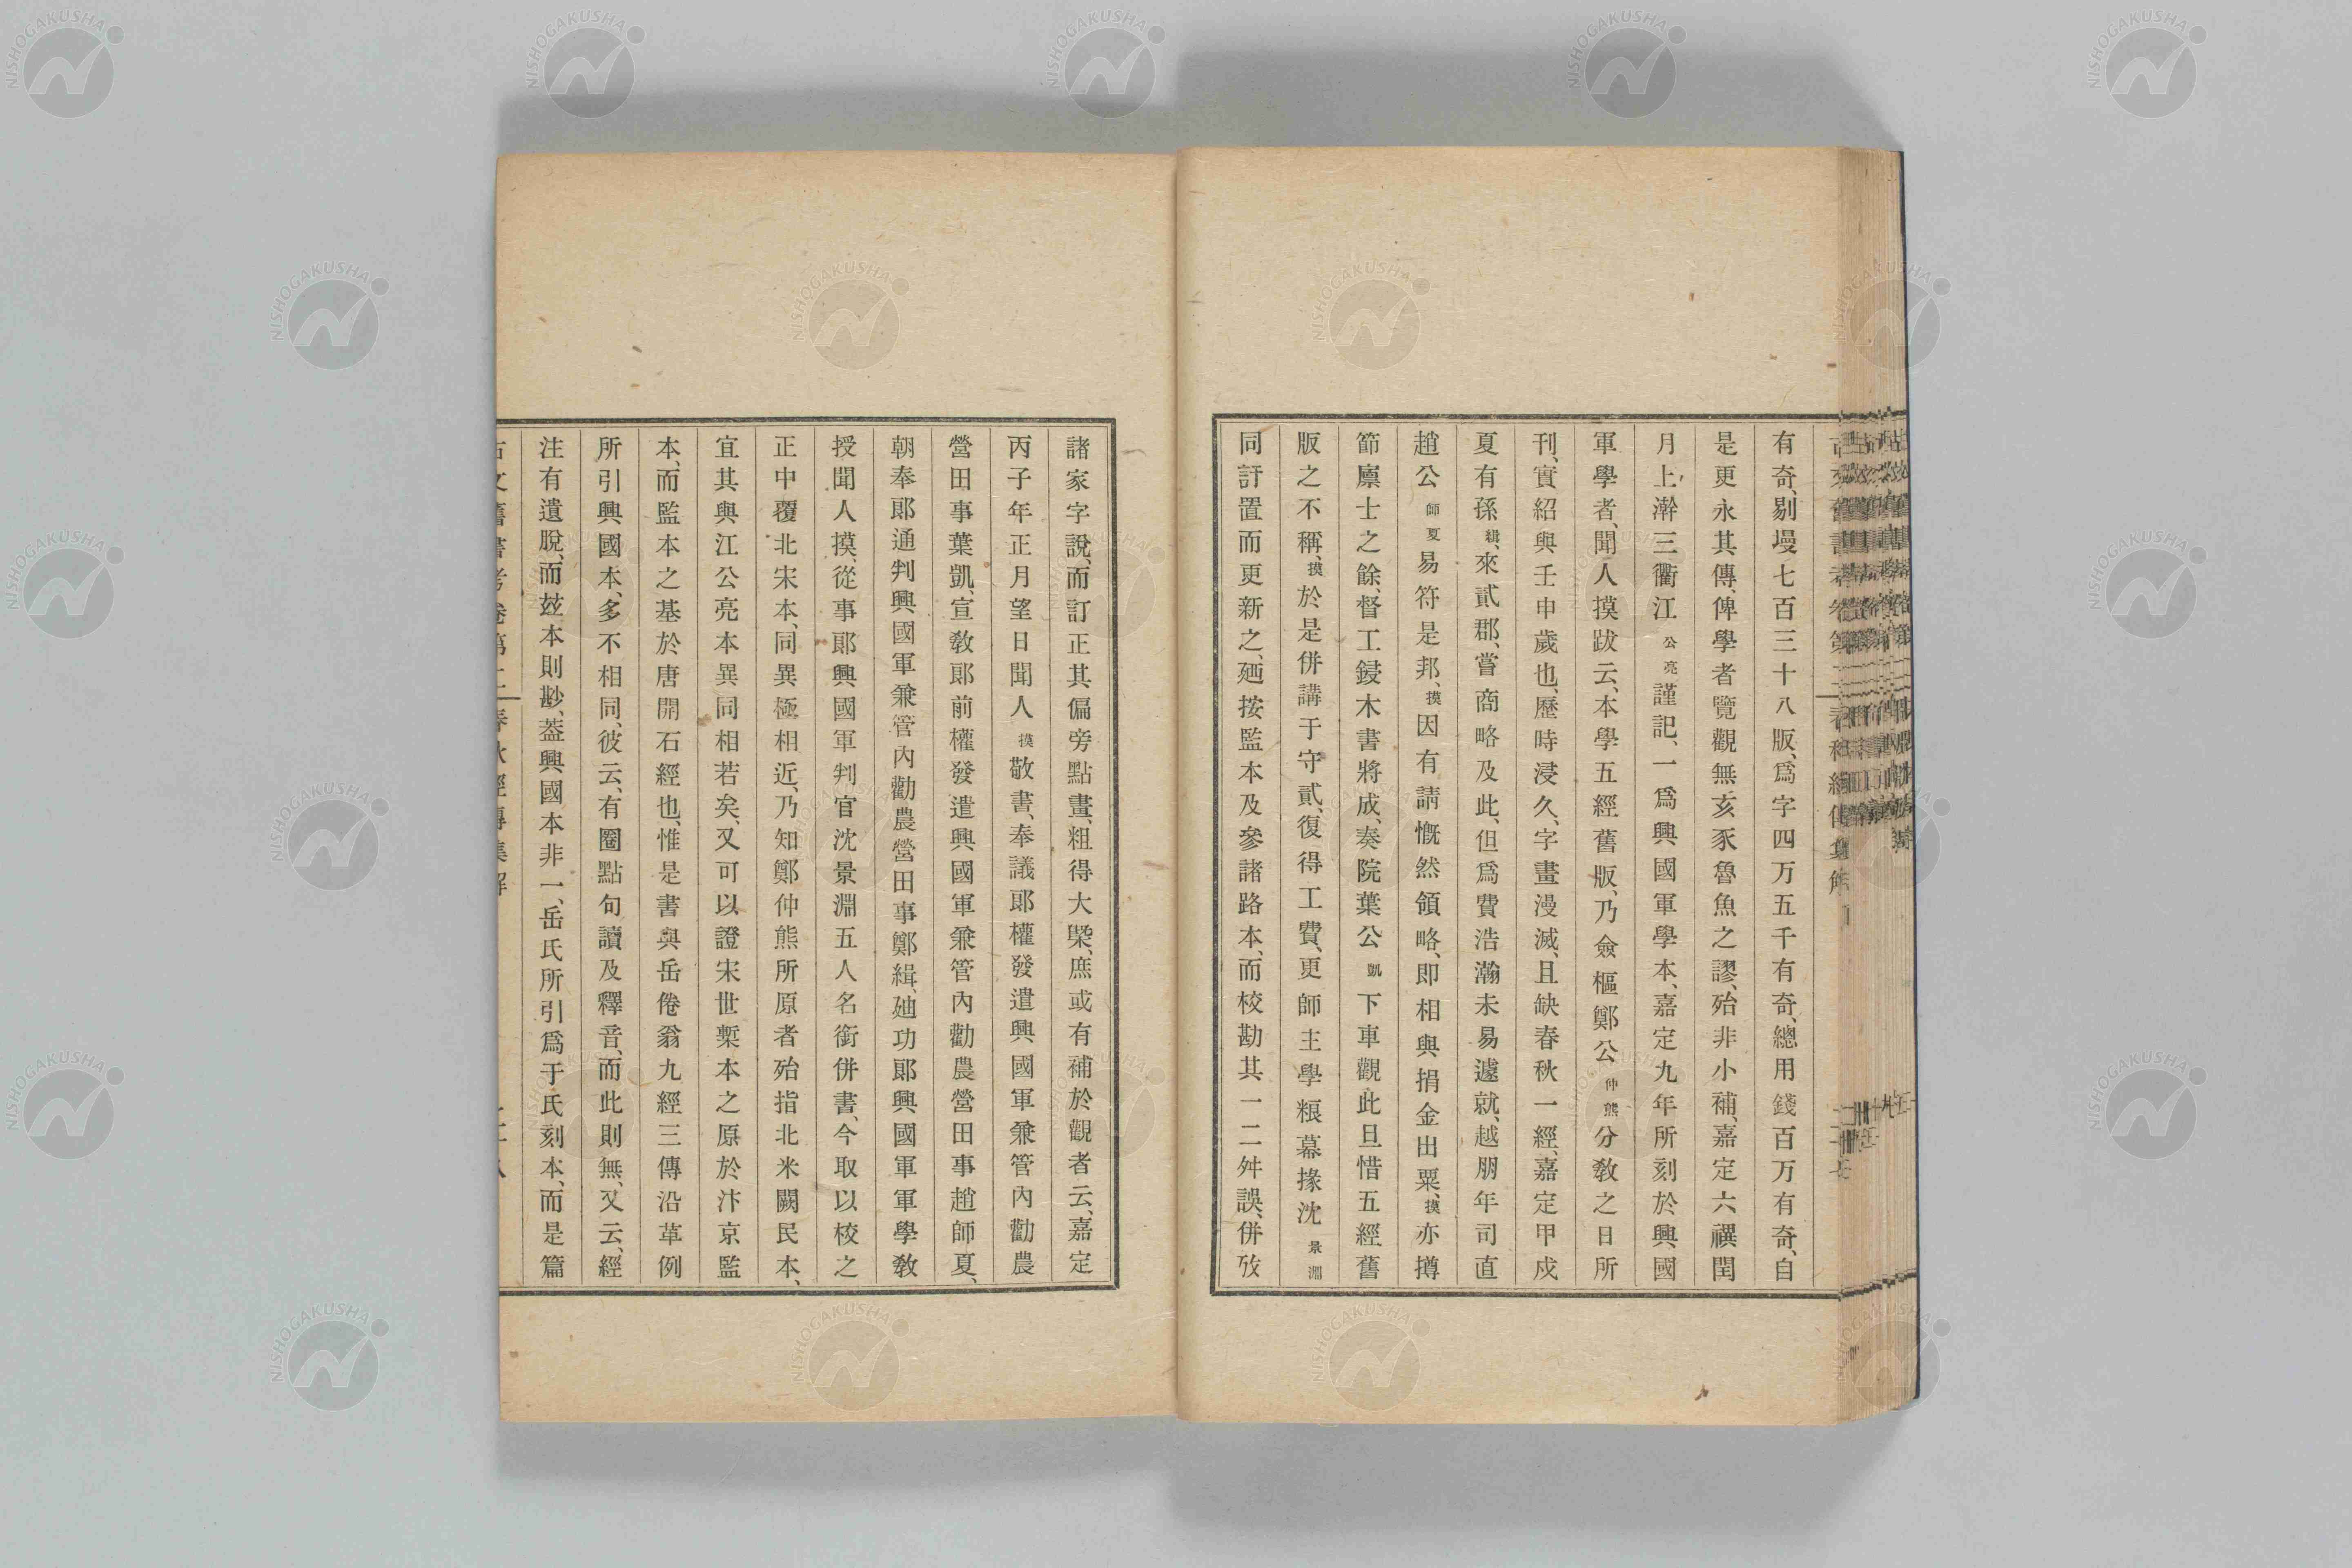 有奇、剔墁七百三十八版、爲字四万五千有奇、總用錢百万有奇、自
是更永其傳、俾學者覽觀無亥豕魯魚之謬、殆非小補、嘉定六禩閏
月上澣三衢江公亮謹記、一爲興國軍學本、嘉定九年所刻於興國
軍學者、聞人摸跋云、本學五經舊版、乃僉樞鄭公仲熊分敎之日所
刊、實紹興壬申歲也、歷時浸久、字畫漫滅、且缺春秋一經、嘉定甲戍
夏有孫緝、來貳郡、嘗商略及此、但爲費浩瀚未易遽就、越朋年司直
趙公師夏易符是邦、摸因有請慨然領略、卽相與捐金出粟、摸亦撙
節廩士之餘、督工鋟木書將成、奏院葉公凱下車觀此且惜五經舊
版之不稱、摸於是併講于守貳、復得工費、更師主學粮幕掾沈景淵
同訝置而更新之、廼按監本及參諸路本、而校勘其一二舛誤、併攷
諸家字說、而訂正其偏旁點畫、粗得大槩、庶或有補於觀者云、嘉定
丙子年正月望日聞人摸敬書、奉議郎權發遣興國軍兼管內勸農
營田事葉凱、宣敎郎前權發遣興國軍兼管內勸農營田事趙師夏、
朝奉郎通判興國軍兼管內勸農營田事鄭緝、廸功郎興國軍軍學敎
授聞人摸、從事郎興國軍判官沈景淵五人名銜併書、今取以校之
正中覆北宋本、同異極相近、乃知鄭仲熊所原者殆指北米闕民本、
宜其與江公亮本異同相若矣、又可以證宋世槧本之原於汴京監
本、而監本之基於唐開石經也、惟是書與岳倦翁九經三傳沿革例
所引興國本、多不相同、彼云、有圈點句讀及釋音、而此則無、又云、經
注有遺脫、而玆本則尠、葢興國本非一、岳氏所引爲于氏刻本、而是篇
NISHOGAKUSHA